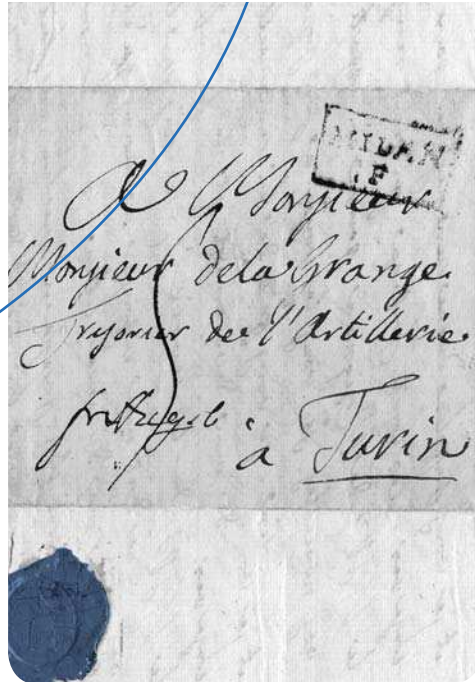 MILAN
.F.
A Monsieur
Monsieur dela Grange
Tresorier de l'Artillerie
à Turin